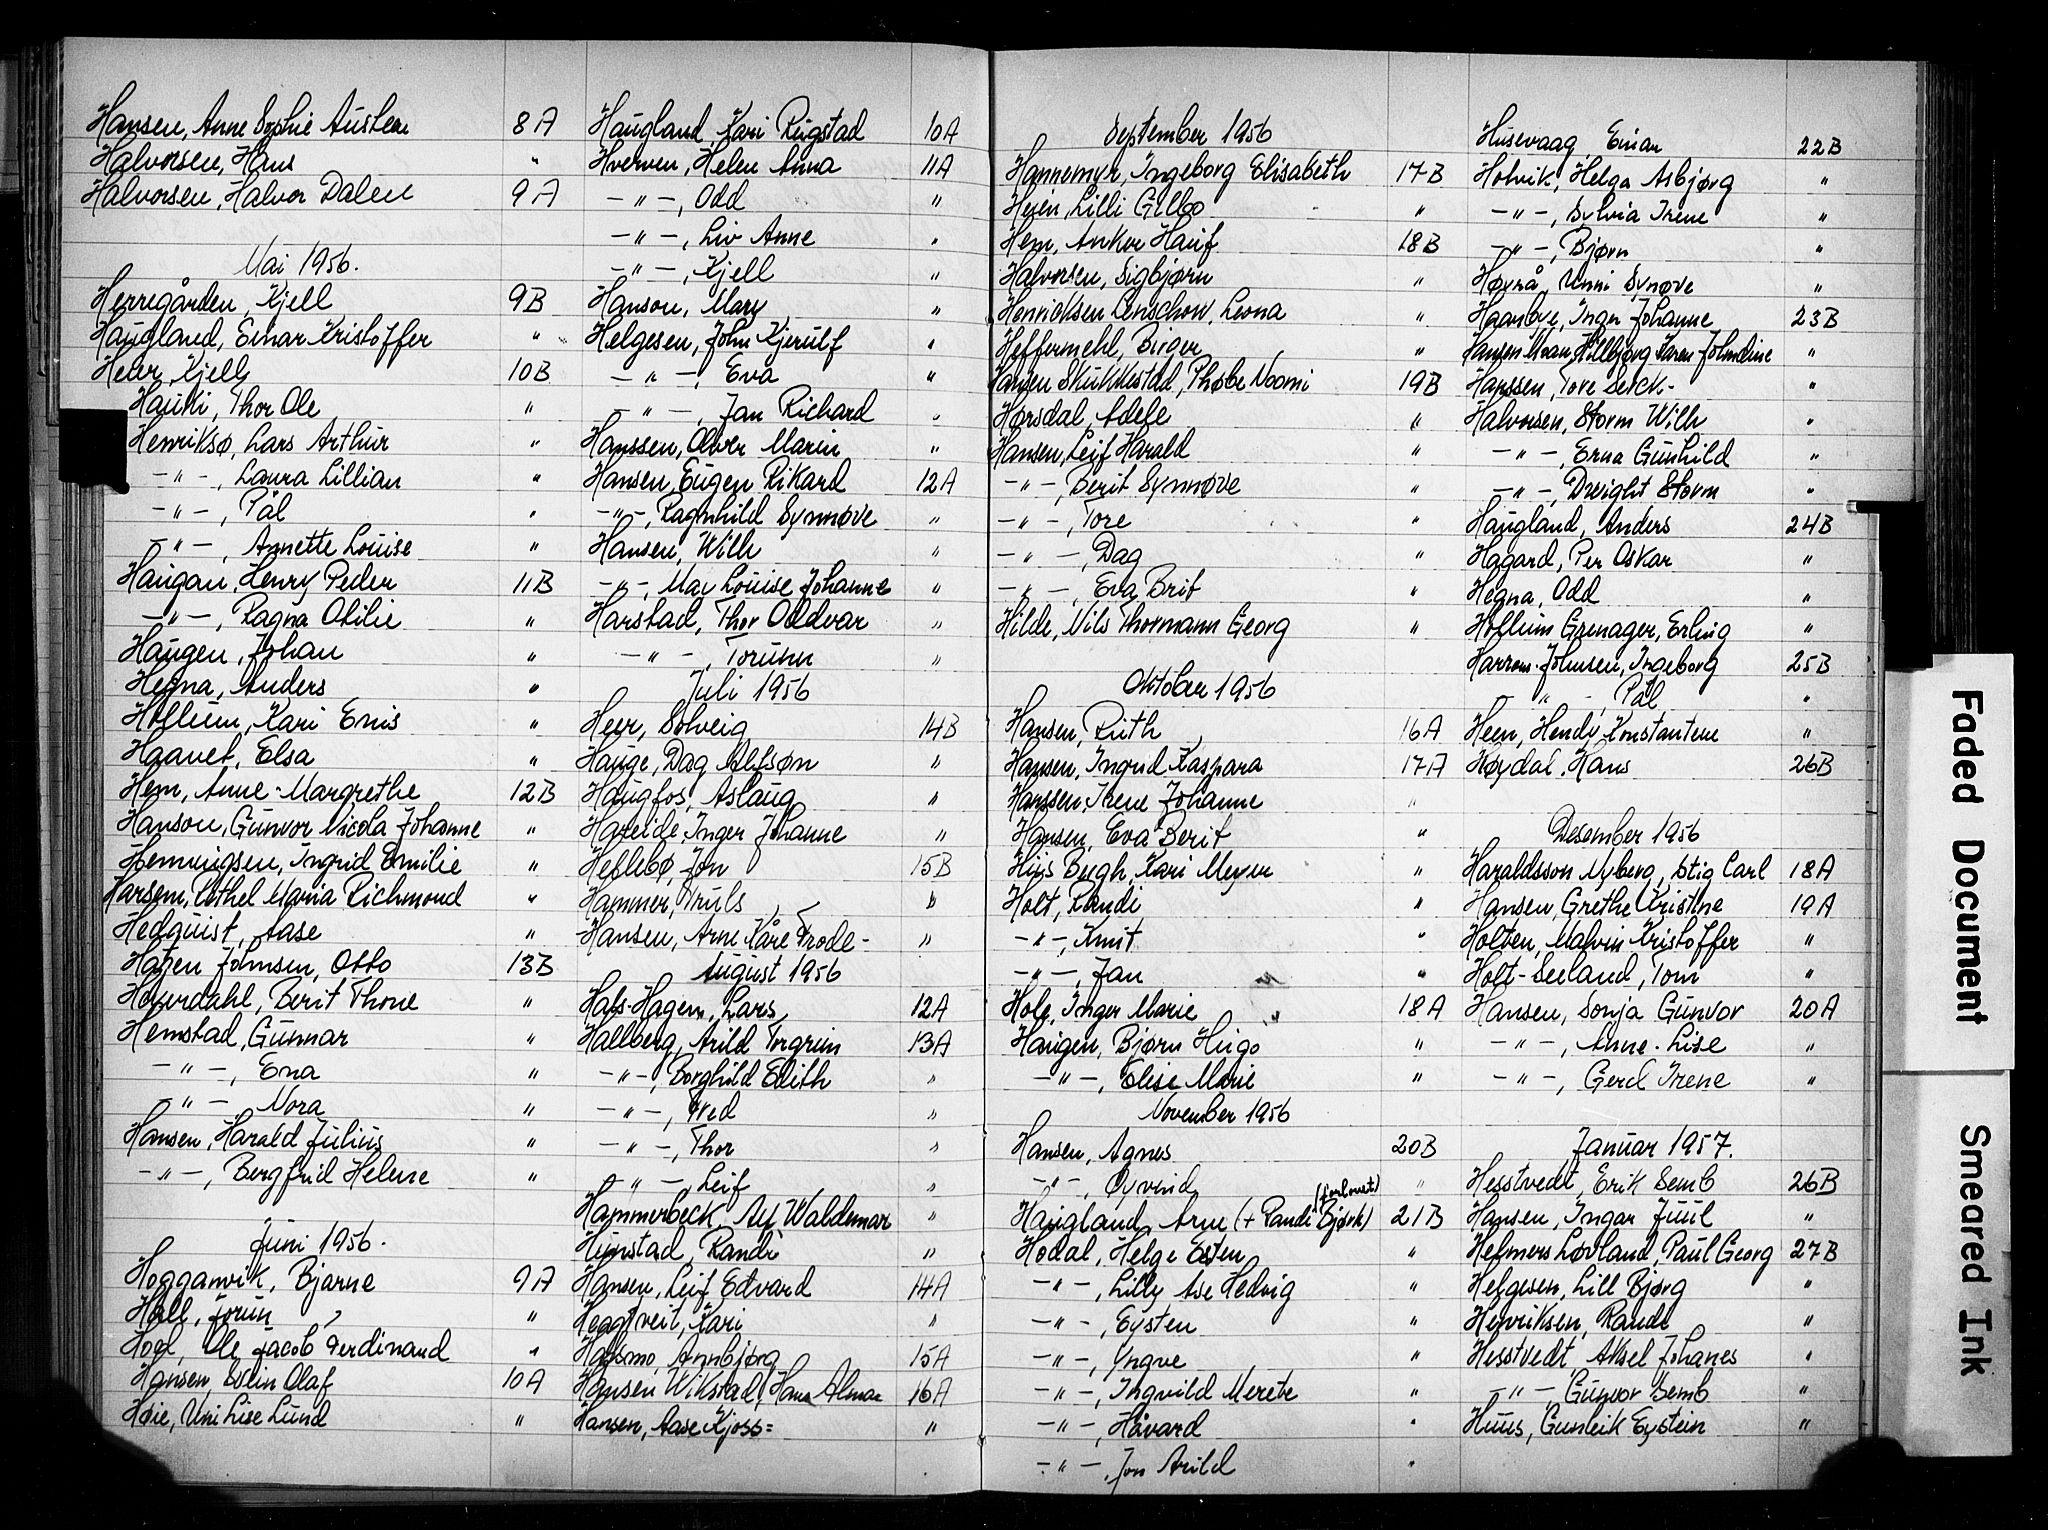 Hansen, Anne Sophie Austeen 8A
Halvorsen, Hans "
Halvorsen, Halvor Dalen 9A
Mai 1956.
Herregården, Kjell 9B
Haugland, Einar Kristoffer "
Heier, Kjell 10B
Hauki, Thor Ole "
Henriksø, Lars Arthur "
- " -, Laura Lillian "
- " -, Pål "
- " -, Annette Louise "
Haugan, Henry Peder 11B
- " -, Ragna Otilie "
Haugen, Johan "
Hegna, Anders "
Hollum, Kari Enis "
Haavet, Elsa "
Hem, Anne-Margrethe 12B
Hanson, Gunvor Nicola Johanne "
Henningsen, Ingrid Emilie "
Hansen, Ethel Maria Richmond "
Hedquist, Aase "
Hagen Johnsen, Otto 13B
Hoverdahl, Berit Thone "
Hemstad, Gunnar "
- " -, Ena "
- " -, Nora "
Hansen, Harald Julius "
- " -, Bergfrid Helene "
Juni 1956.
Hogganvik, Bjarne 9A
Hall, Jorun "
Hoel, Ole Jacob Ferdinand "
Hansen, Svein Olaf 10A
Høie, Uni Lise Lund "
Haugland, Kari Rugstad 10A
Hverven, Helen Anna 11A
- " -, Odd "
- " -, Liv Anne "
- " -, Kjell "
Hanson, Mary "
Helgesen, John Kjerulf "
- " -, Eva "
- " -, Jan Richard "
Hanssen, Oliver Marin "
Hansen, Eugen Rikard 12A
- " -, Ragnhild Synnøve "
Hansen, Wilh "
- " -, May Louise Johanne "
Harstad, Thor Oddvar "
- " -, Torunn "
Juli 1956
Heer, Solveig 14B
Hauge, Dag Alfsøn "
Haugfos, Aslaug "
Hareide, Inger Johanne "
Hellebø, Jon 15B
Hammer, Truls "
Hansen, Arne Kåre Frode- "
August 1956
Hals-Hagen, Lars 12A
Hallberg, Arild Torgrim 13A
- " -, Borghild Edith "
- " -, Fred "
- " -, Thor "
- " -, Leif "
Hammerbeck, Alf Waldemar "
Hunstad, Randi "
Hansen, Leif Edvard 14A
Heggtveit, Kari "
Hagsmo, Annbjørg 15A
Hansen Wikstad, Hans Almar 16A
Hansen, Aase Kjoss= "
September 1956
Hannemyr, Ingeborg Elisabeth 17B
Heien, Lilli Gilbo "
Hem, Anker Hauf 18B
Halvorsen, Sigbjørn "
Henriksen Lenschow, Leona "
Heffermehl, Birger "
Hansen Skukkestad, Phøbe Noomi 19B
Hørsdal, Adele "
Hansen, Leif Harald "
- " -, Berit Synnøve "
- " -, Tore "
- " -, Dag "
- " -, Eva Brit "
Hilde, Nils Thormann Georg "
Oktober 1956
Hansen, Ruth 16A
Hansen, Ingrid Kaspara 17A
Hanssen, Irene Johanne "
Hansen, Eva Berit "
Hiis Bergh, Kari Meyer "
Holt, Randi "
- " -, Knut "
- " -, Jan "
Hole, Inger Marie 18A
Haugen, Bjørn Hugo "
- " -, Elise Marie "
November 1956
Hansen, Agnes 20B
- " -, Øyvind "
Haugland, Arne (+ Randi Bjørk) (forlovet) 21B
Hodal, Helge Esten "
- " -, Lilly Åse Hedvig "
- " -, Eysten "
- " -, Yngve "
- " -, Ingvild Merete "
- " -, Håvard "
- " -, Jon Arild "
Husevaag, Einar 22B
Holvik, Helga Asbjørg "
- " -, Sylvia Irene "
- " -, Bjørn "
Høyrå, Unni Synøve "
Haanbye, Inger Johanne 23B
Hansen Moan, Hilbjørg Karen Johndine "
Hanssen, Tore Serck- "
Halvorsen, Storm Wilh "
- " -, Erna Gunhild "
- " -, Dwight Storm "
Haugland, Anders 24B
Hagard, Per Oskar "
Hegna, Odd "
Hollum Grenager, Erling "
Harrom-Johnsen, Ingeborg 25B
- " - Pål "
Heen, Hendy Konstantene "
Høydal, Hans 26B
Desember 1956
Haraldsson Nyberg, Stig Carl 18A
Hansen, Grethe Kristine 19A
Holten, Malvin Kristoffer "
Holt-Seeland, Tom "
Hansen, Sonja Gunvor 20A
- " -, Anne-Lise "
- " -, Gerd Irene "
Januar 1957.
Hesstvedt, Erik Semb 26B
Hansen, Ingar Juul "
Helmers Løvland, Paul Georg 27B
Helgesen, Lill Bjørg "
Henriksen, Randi "
Hesstvedt, Aksel Johanes "
- " -, Gunvor Semb "
Huus, Gunleik Eystein "
Faded Document
Smeared Ink